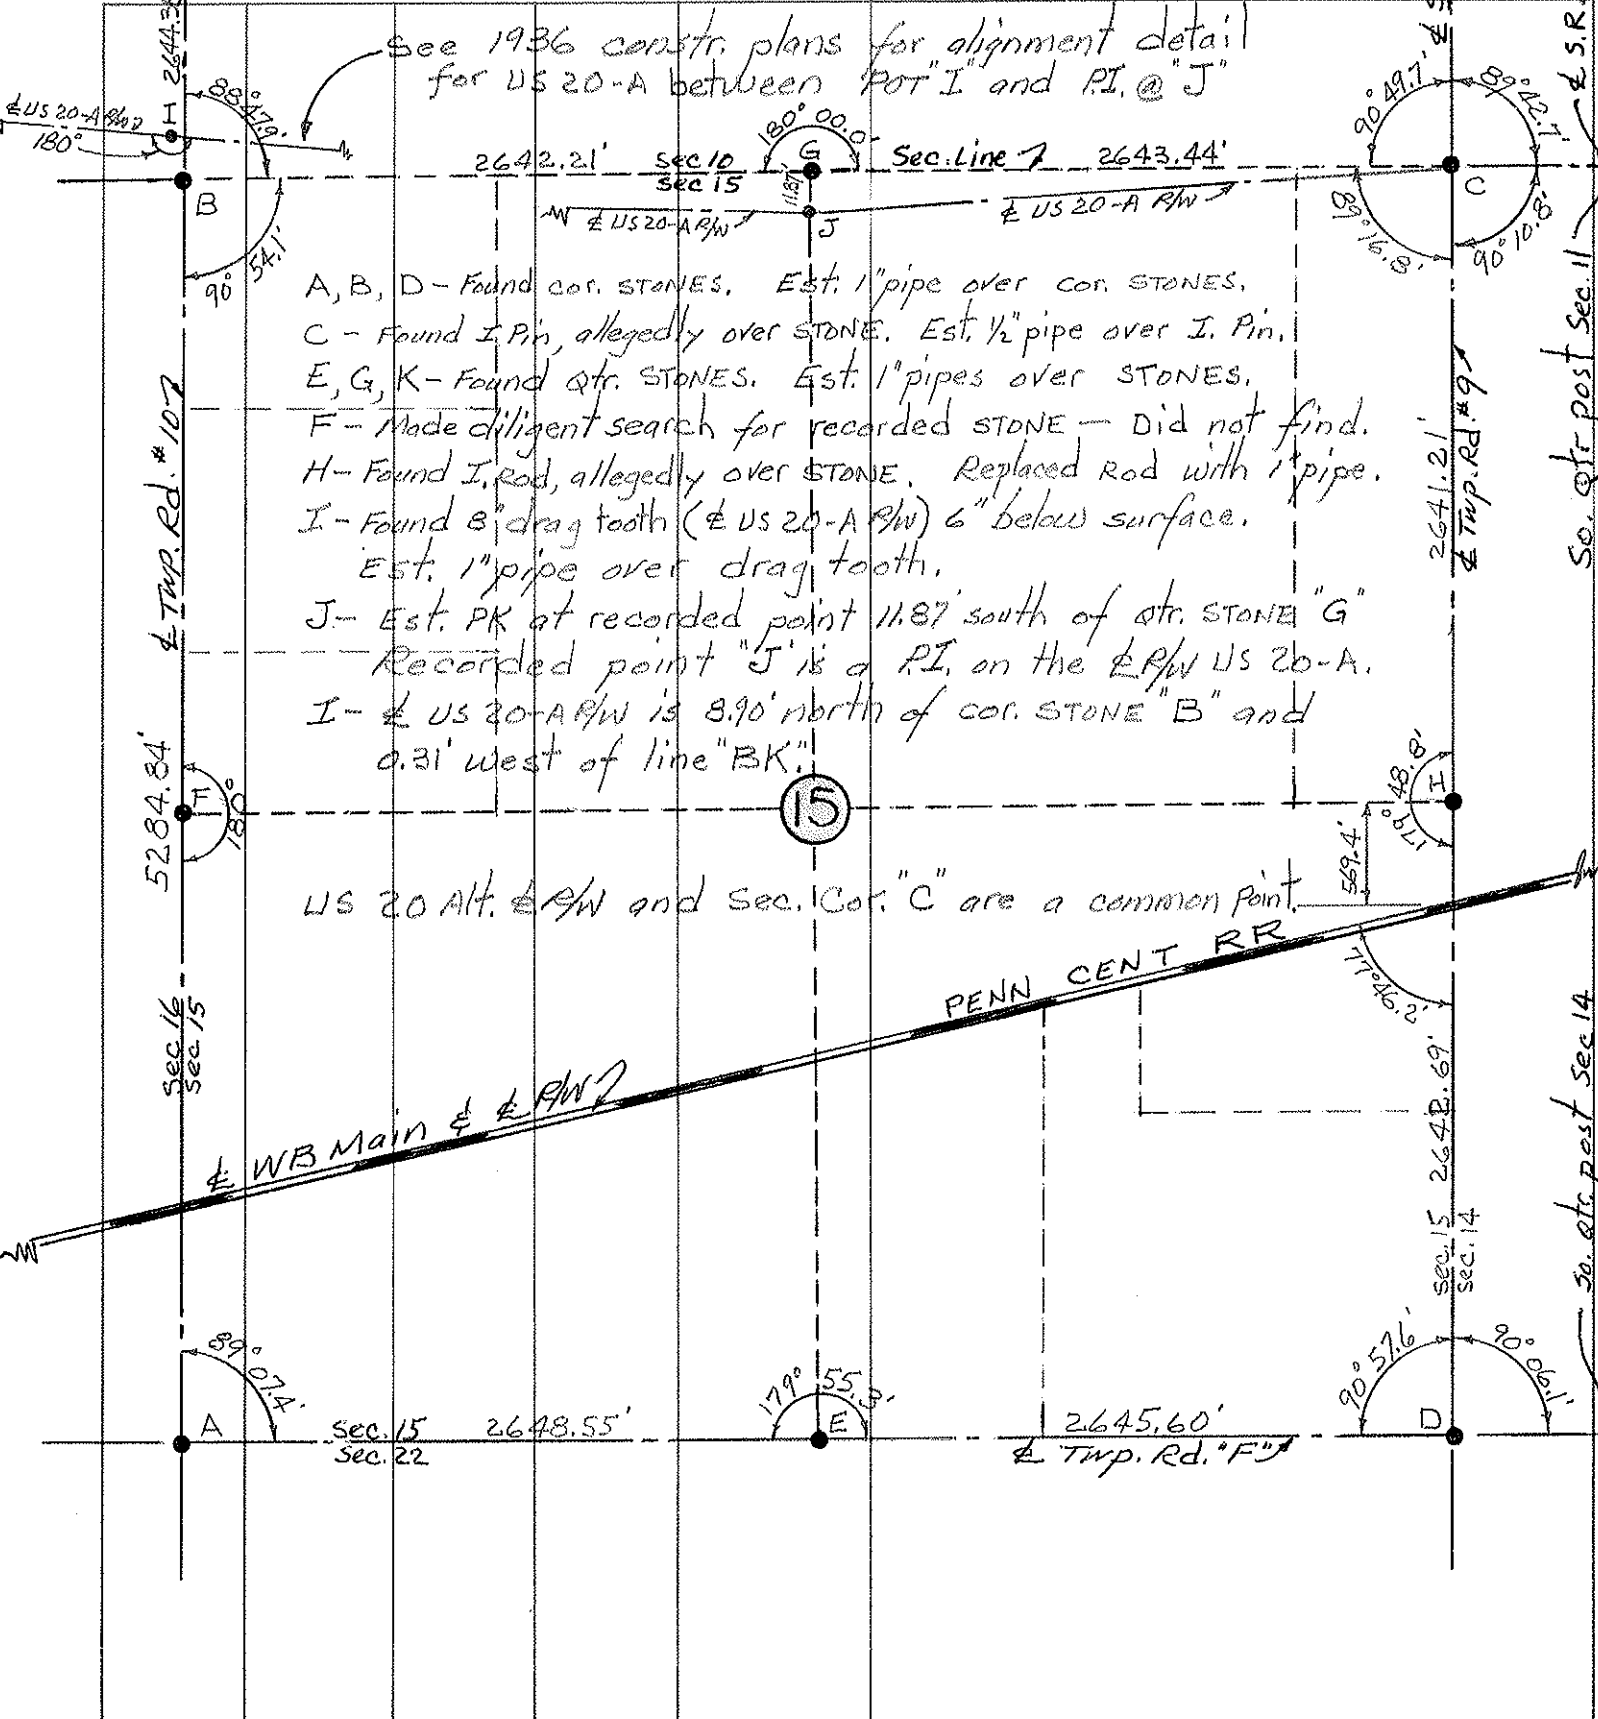 See 1936 constr. plans for alignment detail
for US 20-A between POT "I" and P.I. @ "J"
H 2644.3
88° 47.9'
℄ US 20-A R/W
180°
B
90° 54.1'
2642.21'
Sec 10
Sec 15
180° 00.0'
G
11.87'
J
Sec. Line
2643.44'
℄ US 20-A R/W
℄ US 20-A R/W
90° 49.7'
89° 42.7'
C
89° 16.8'
90° 10.8'
℄ S.R.
A, B, D - Found cor. STONES. Est. 1" pipe over cor. STONES.
C - Found I. Pin, allegedly over STONE. Est. ½" pipe over I. Pin.
E, G, K - Found Qtr. STONES. Est. 1" pipes over STONES.
F - Made diligent search for recorded STONE — Did not find.
H - Found I. Rod, allegedly over STONE. Replaced Rod with 1" pipe.
I - Found 8" drag tooth (℄ US 20-A R/W) 6" below surface.
Est. 1" pipe over drag tooth.
J - Est. PK at recorded point 11.87' south of Qtr. STONE "G"
Recorded point "J" is a P.I. on the ℄ R/W US 20-A.
I - ℄ US 20-A R/W is 8.90' north of cor. STONE "B" and
0.31' west of line "BK".
℄ Twp. Rd. #10
2641.21'
℄ Twp. Rd. #9
So. Qtr post Sec. 11
5284.84'
F
180°
15
179° 48.8'
H
569.4'
US 20 Alt. ℄ R/W and Sec. Cor. "C" are a common point.
PENN CENT RR
77° 46.2'
Sec 16
Sec 15
℄ WB Main & ℄ R/W
2642.69'
Sec. 15
Sec. 14
So. Qtr. post Sec 14
89° 07.4'
A
Sec. 15
Sec. 22
2648.55'
179° 55.3'
E
2645.60'
℄ Twp. Rd. "F"
90° 57.6'
90° 06.1'
D